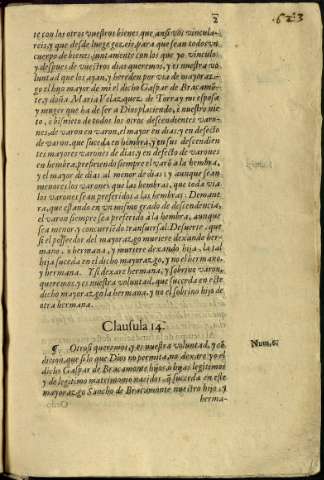 2
6213
te con los otros nuestros bienes que ansi vos vincula-
reis, y que desde luego gozeis, para que sean todos vn
cuerpo de bienes, juntamente con los que yo vinculo
y despues de nuestros dias queremos, y es nuestra vo-
luntad que los ayan, y hereden por via de mayoraz-
go el hijo mayor de mi el dicho Gaspar de Bracamo-
te, y doña Maria Velazquez de Torray mi esposa
y muger que ha de ser a Dios placiendo, ò nuestro nie-
to, ò bisnieto de todos los otros descendientes varo-
nes, de varon en varon, el mayor en dias: y en defecto
de varon, que suceda en hembra, y en sus descendien
tes mayores varones de dias, y en defecto de varones
en hembra, prefiriendo siempre el varõ a la hembra,
y el mayor de dias al menor de dias: y aunque sean
menores los varones que las hembras, que toda via
los varones sean preferidos a las hembras. De mane
ra, que estando en vn mismo grado de descendencia,
el varon siempre sea preferido à la hembra, aunque
sea menor y concurriēdo transuersal. De suerte, que
si el posseedor del mayorazgo muriere dexando her-
mano, o hermana, y muriere dexando hija, la tal
hija suceda en el dicho mayorazgo, y no el hermano,
y hermana. Y si dexare hermana, y sobrino varon,
queremos, y es nuestra voluntad, que suceda en este
dicho mayorazgo la hermana, y no el sobrino hijo de
otra hermana.
Clausula 14.
¶ Otrosi queremos, y es nuestra voluntad, y cõ
dicion, que si lo que Dios no permita, no dexare yo el
dicho Gaspar de Bracamonte hijos o hijas legitimos
y de legitimo matrimonio nacidos, q̃ suceda en este
mayorazgo Sancho de Bracamonte nuestro hijo, y
herma-
Num. 6.